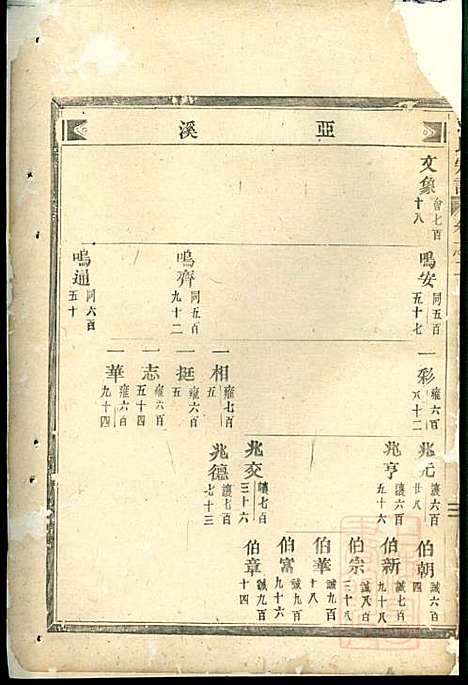 亞溪
文象 會七百十八
鳴安 同五百五十七
鳴齊 同五百九十二
鳴通 同六百五十
一彩 雍六百八十二
一相 雍七百五
一挺 雍六百五
一志 雍六百五十四
一華 雍六百九十四
兆元 讓六百廿八
兆亨 讓六百五十六
兆交 讓七百三十六
兆德 讓七百七十三
伯朝 誠六百四
伯新 誠七百九十八
伯宗 誠八百三十八
伯華 誠九百十八
伯富 誠九百九十六
伯章 誠九百十四